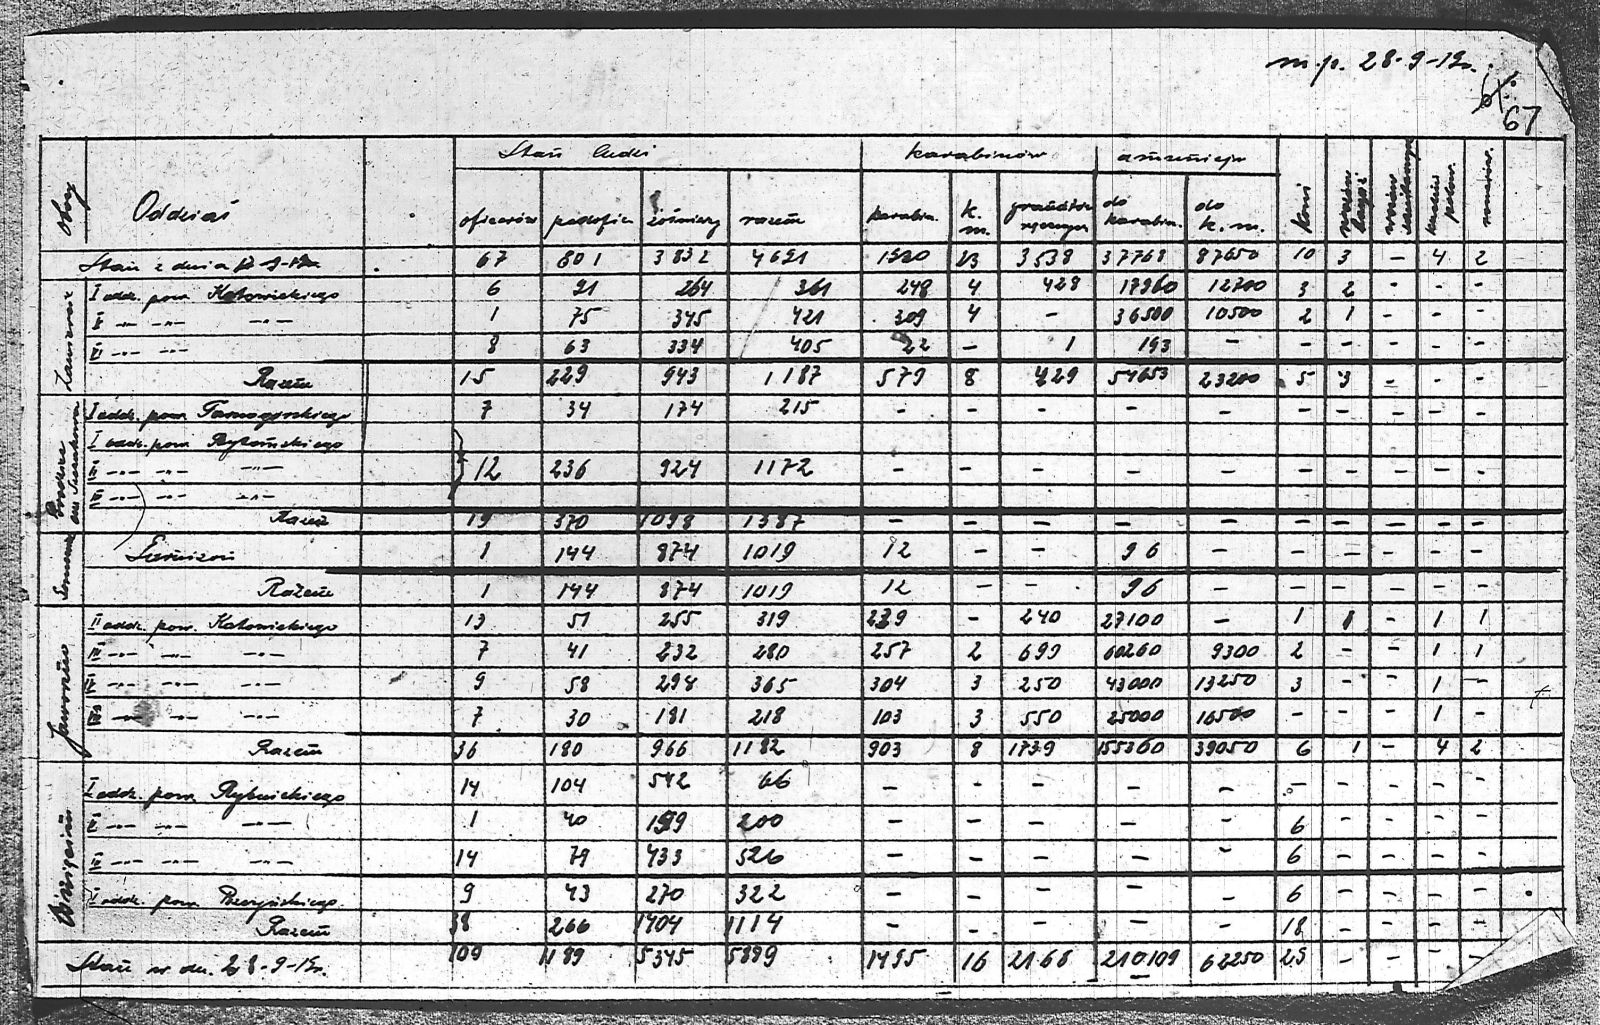 m.p. 28-9-19r.
67
Obóz Oddział Stan ludzi karabinów amunicja
oficerów podofic. żołnierzy razem karabin. k. m. granatów ręcznych do karabin. do k. m. koni kuchni polow.
Stan z dnia 67 801 3832 4621 1520 23 3538 37768 87650 10 3 - 4 2
I oddz. pow. Katowickiego 6 91 264 361 248 4 428 17960 12700 3 2 - - -
II -"- -"- -"- 1 75 345 421 309 4 - 36500 10500 2 1 - - -
VI -"- -"- 8 63 334 405 22 - 1 193 - - - - - -
Razem 15 229 943 1187 579 8 429 54653 23200 5 3 - - -
I oddz. pow. Tarnogórskiego 7 34 174 215 - - - - - - - - - -
I oddz. pow. Bytomskiego
II -"- -"- -"- 12 236 924 1172 - - - - - - - - - -
III -"- -"- -"-
Razem 19 370 1098 1387 - - - - - - - - - -
1 144 874 1019 12 - - 96 - - - - - -
Razem 1 144 874 1019 12 - - 96 - - - - - -
Jaworzno
II oddz. pow. Katowickiego 13 51 255 319 239 - 240 27100 - 1 1 - 1 1
III -"- -"- -"- 7 41 232 280 257 2 699 60260 9300 2 - - 1 1
IV -"- -"- -"- 9 58 298 365 304 3 250 43000 13250 3 - - 1 -
-"- -"- -"- 7 30 181 218 103 3 550 25000 16500 - - - 1 -
Razem 36 180 966 1182 903 8 1739 155360 39050 6 1 - 4 2
I oddz. pow. Rybnickiego 14 104 542 66 - - - - - - - - - -
II -"- -"- -"- 1 40 159 200 - - - - - 6 - - - -
III -"- -"- -"- 14 79 433 526 - - - - - 6 - - - -
I oddz. pow. Pszczyńskiego 9 43 270 322 - - - - - 6 - - - -
Razem 38 266 1404 1114 - - - - - 18 - - - -
Stan w dn. 28-9-19r. 109 1189 5345 5899 1495 16 2168 210109 62250 29 - - - -